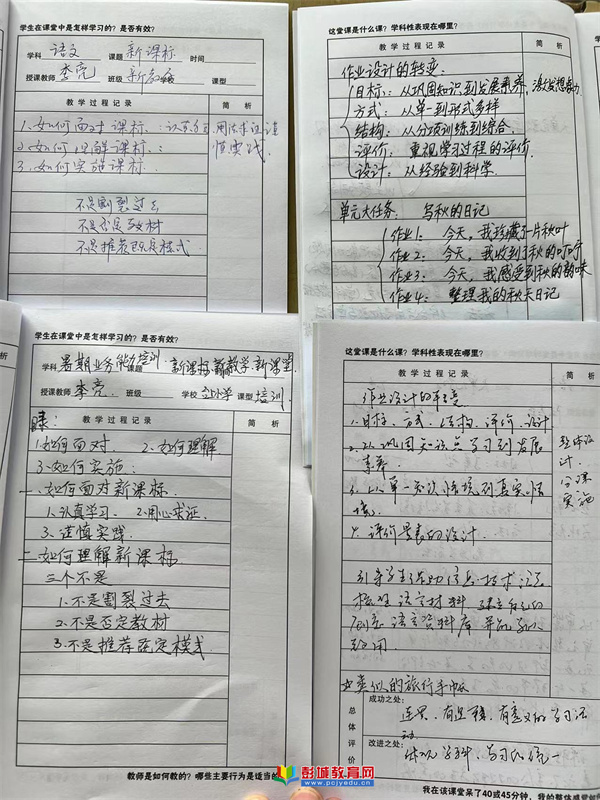 学生在课堂中是怎样学习的？是否有效？
学科 语文 课题 新课标 时间
授课教师 李亮 班级 课型
教学过程记录 简析
1.如何面对课标：认真学习 用心求证 谨
2.如何理解课标： 慎实践
3.如何实施课标.
不是割裂过去
不是否定教材
不是推荐既定模式
这堂课是什么课？学科性表现在哪里？
教学过程记录 简析
作业设计的转变：
目标：从巩固知识到发展素养，激发想象力
方式：从单一到形式多样
结构：从分项训练到综合.
评价：重视学习过程的评价.
设计：从经验到科学.
单元大任务：写秋的日记
作业1：今天，我珍藏了一片秋叶
作业2：今天，我收到了秋的叮咛
作业3：今天，我感受到秋的韵味
作业4：整理我的秋天日记
学生在课堂中是怎样学习的？是否有效？
学科 暑期业务能力培训 课题 新课标 新教学 新课堂
授课教师 李亮 学校 小学 课型 培训
教学过程记录 简析
1.如何面对 2.如何理解
3.如何实施：
一.如何面对新课标.
1.认真学习. 2.用心求证.
3.谨慎实践.
二.如何理解新课标.
三个不是
1.不是割裂过去
2.不是否定教材
3.不是推荐既定模式
教师是如何教的？哪些主要行为是适当的
这堂课是什么课？学科性表现在哪里？
教学过程记录 简析
作业设计的转变
1.目标、方式、结构、评价、设计
2.从巩固知识点学习到发展 整体设
素养 计.
3.从单一 情境到真实情 分课
境. 实施
评价量表的设计.
引导学生借助信息技术
梳理语言材料 建立自己的
创意语言资料库 并
运用.
类似的旅行手册
总体评价
成功之处：
连贯、有过程、有意义的学习活
动
改进之处：
体现 学习的统一
我在该课堂呆了40或45分钟，我的整体感觉
彭城教育网